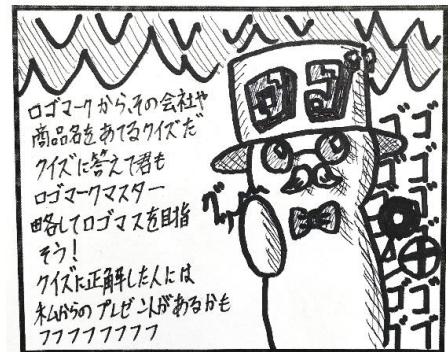 ロゴ
ロゴマークから、その会社や
商品名をあてるクイズだ
クイズに答えて君も
ロゴマークマスター
略してロゴマスを目指
そう！
クイズに正解した人には
私からのプレゼントがあるかも
フフフフフフフフ
ゴゴゴ
ゴゴゴ